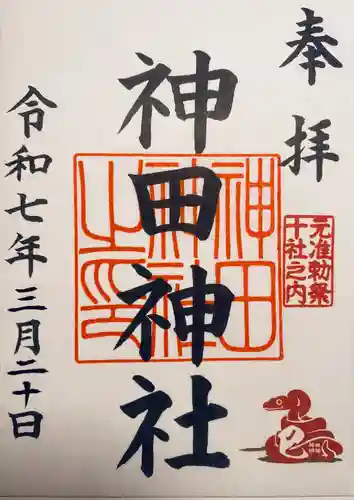 奉拝
元准勅祭
十社之内
神田神社
神田神社之印
令和七年三月二十日